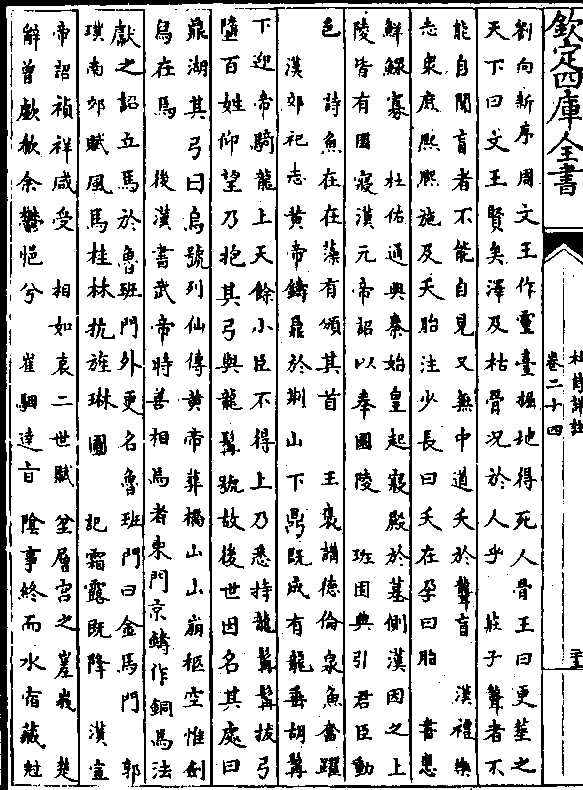 欽定四庫全書
杜詩詳註
卷二十四
劉向新序周文王作靈臺掘地得死人骨王曰更塟之
天下曰文王賢矣澤及枯骨況於人乎 莊子聾者不
能自聞盲者不能自見又無中道夭於聾盲 漢禮樂
志衆庶熙熙施及夭胎注少長曰夭在孕曰胎 書惠
鮮鰥寡 杜佑通典秦始皇起寢殿於墓側漢因之上
陵皆有園寢漢元帝詔以奉園陵 班固典引君臣動
色 詩魚在在藻有頒其首 王襃講德倫泉魚奮躍
漢郊祀志黄帝鑄鼎於荆山下鼎既成有龍垂胡髯
下迎帝騎龍上天餘小臣不得上乃悉持龍髯髯拔弓
墮百姓仰望乃抱其弓與龍髯號故後世因名其處曰
鼎湖其弓曰烏號列仙傳黄帝葬橋山山崩柩空惟劍
舄在焉 後漢書武帝時善相馬者東門京鑄作銅馬法
獻之詔立馬於魯班門外更名魯班門曰金馬門 郭
璞南郊賦風馬桂林抗旌琳圃 記霜露既降 漢宣
帝詔禎祥咸受 相如哀二世賦坌層宮之嵳峩 楚
辭曾歔欷余鬱悒兮 崔駰達旨 陰事終而水宿藏